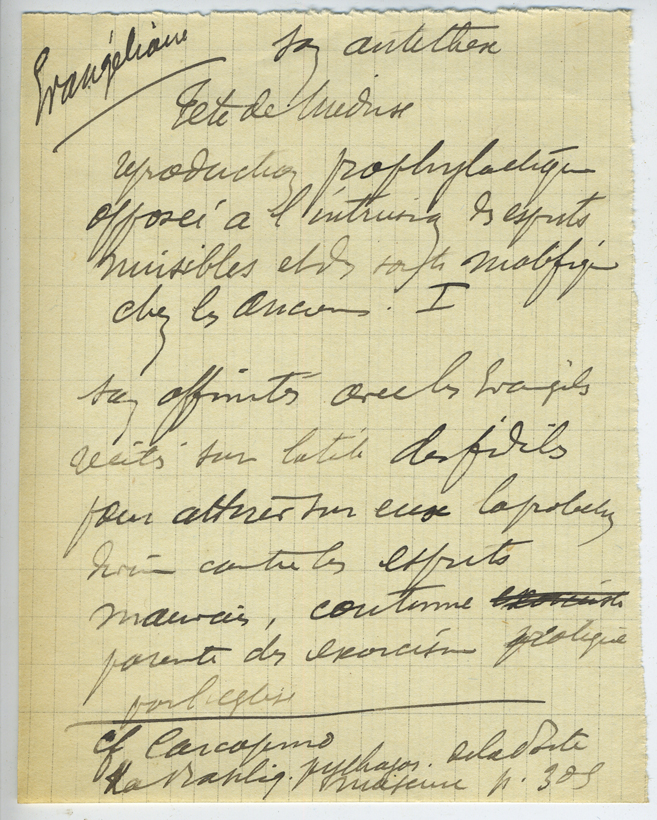 Evangéliaire
sans antithèse
Tête de Méduse
reproduction prophylactique
opposée à l'intrusion des esprits
nuisibles et des maléfique
chez les Anciens. I
sans affinités avec les Evangiles
récités sur la tête des fidèles
pour attirer sur eux la protection
divine contre les esprits
mauvais, coutume
parente des exorcismes pratiqués
par l'église
cf Carcopino
La Basiliq. pythagor. de la Porte
majeure p. 305